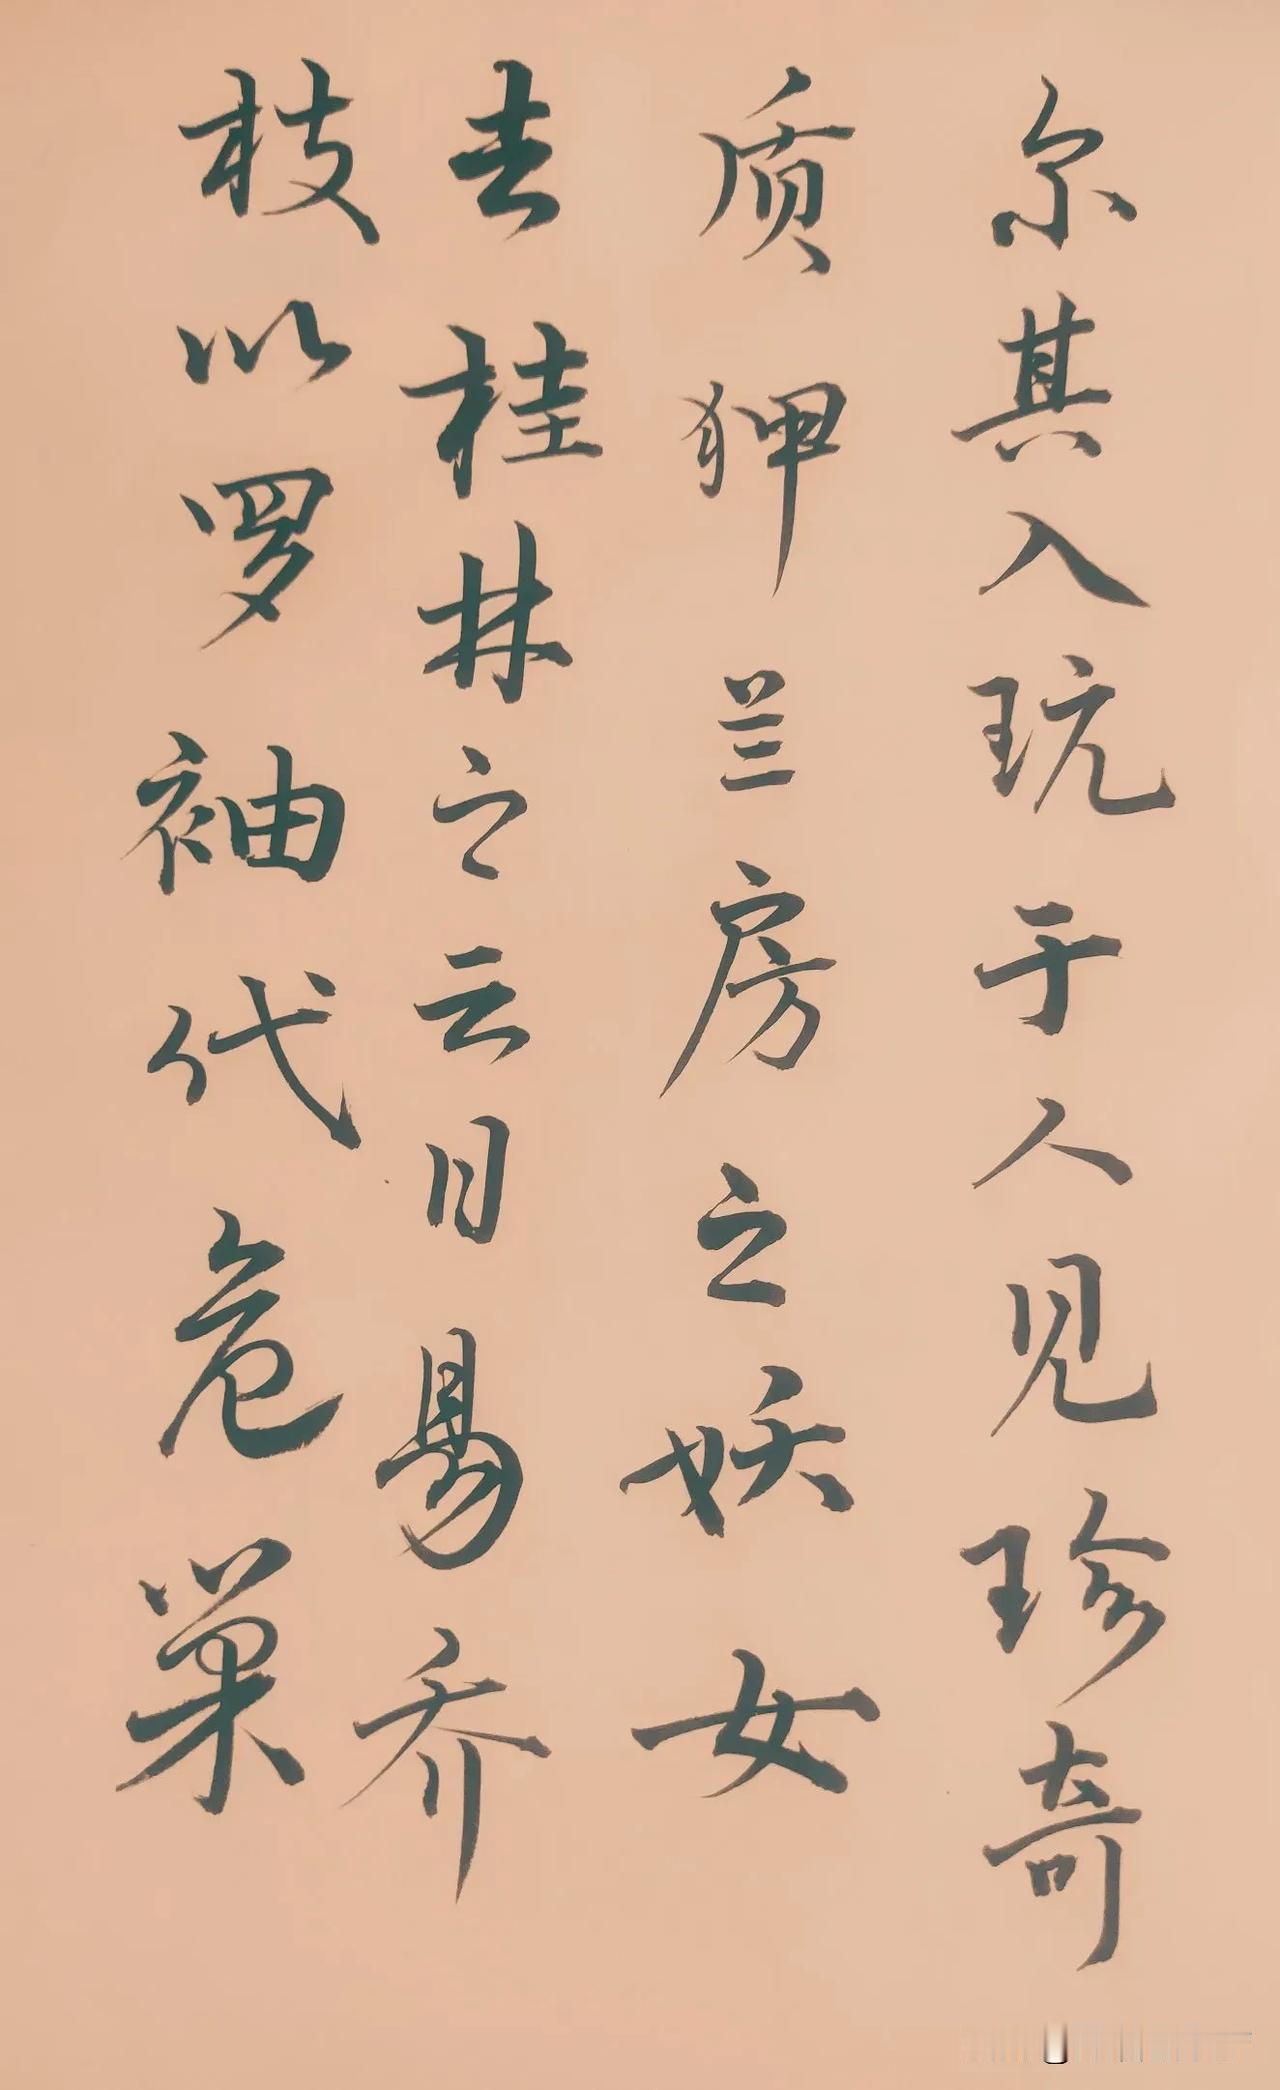 尔其入玩于人见珍奇
质狎兰房之妖女
去桂林之云日易乔
枝以罗袖代危巢